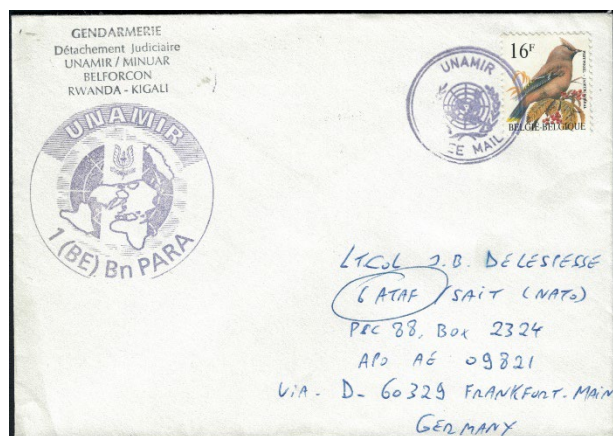 GENDARMERIE
Détachement Judiciaire
UNAMIR / MINUAR
BELFORCON
RWANDA - KIGALI
UNAMIR
1 (BE) Bn PARA
UNAMIR
MAIL
16F
BELGIË-BELGIQUE
LTCOL J.B. DELESPESSE
6 ATAF / SAIT (NATO)
PSC 88, BOX 2324
APO AE 09821
VIA - D- 60329 FRANKFURT-MAIN
GERMANY